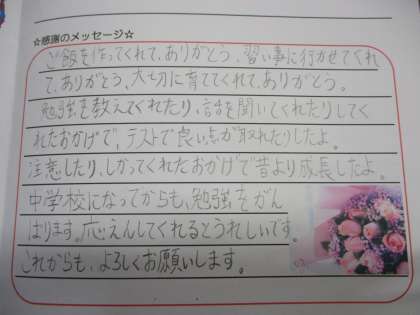 ☆感謝のメッセージ☆
ご飯を作ってくれて、ありがとう、習い事に行かせてくれ
て、ありがとう、大切に育ててくれて、ありがとう。
勉強を教えてくれたり、話を聞いてくれたりしてく
れたおかげで、テストで良い点が取れたりしたよ。
注意したり、しかってくれたおかげで昔より成長したよ。
中学校になってからも、勉強をがん
ばります。応えんしてくれるとうれしいです。
これからも、よろしくお願いします。